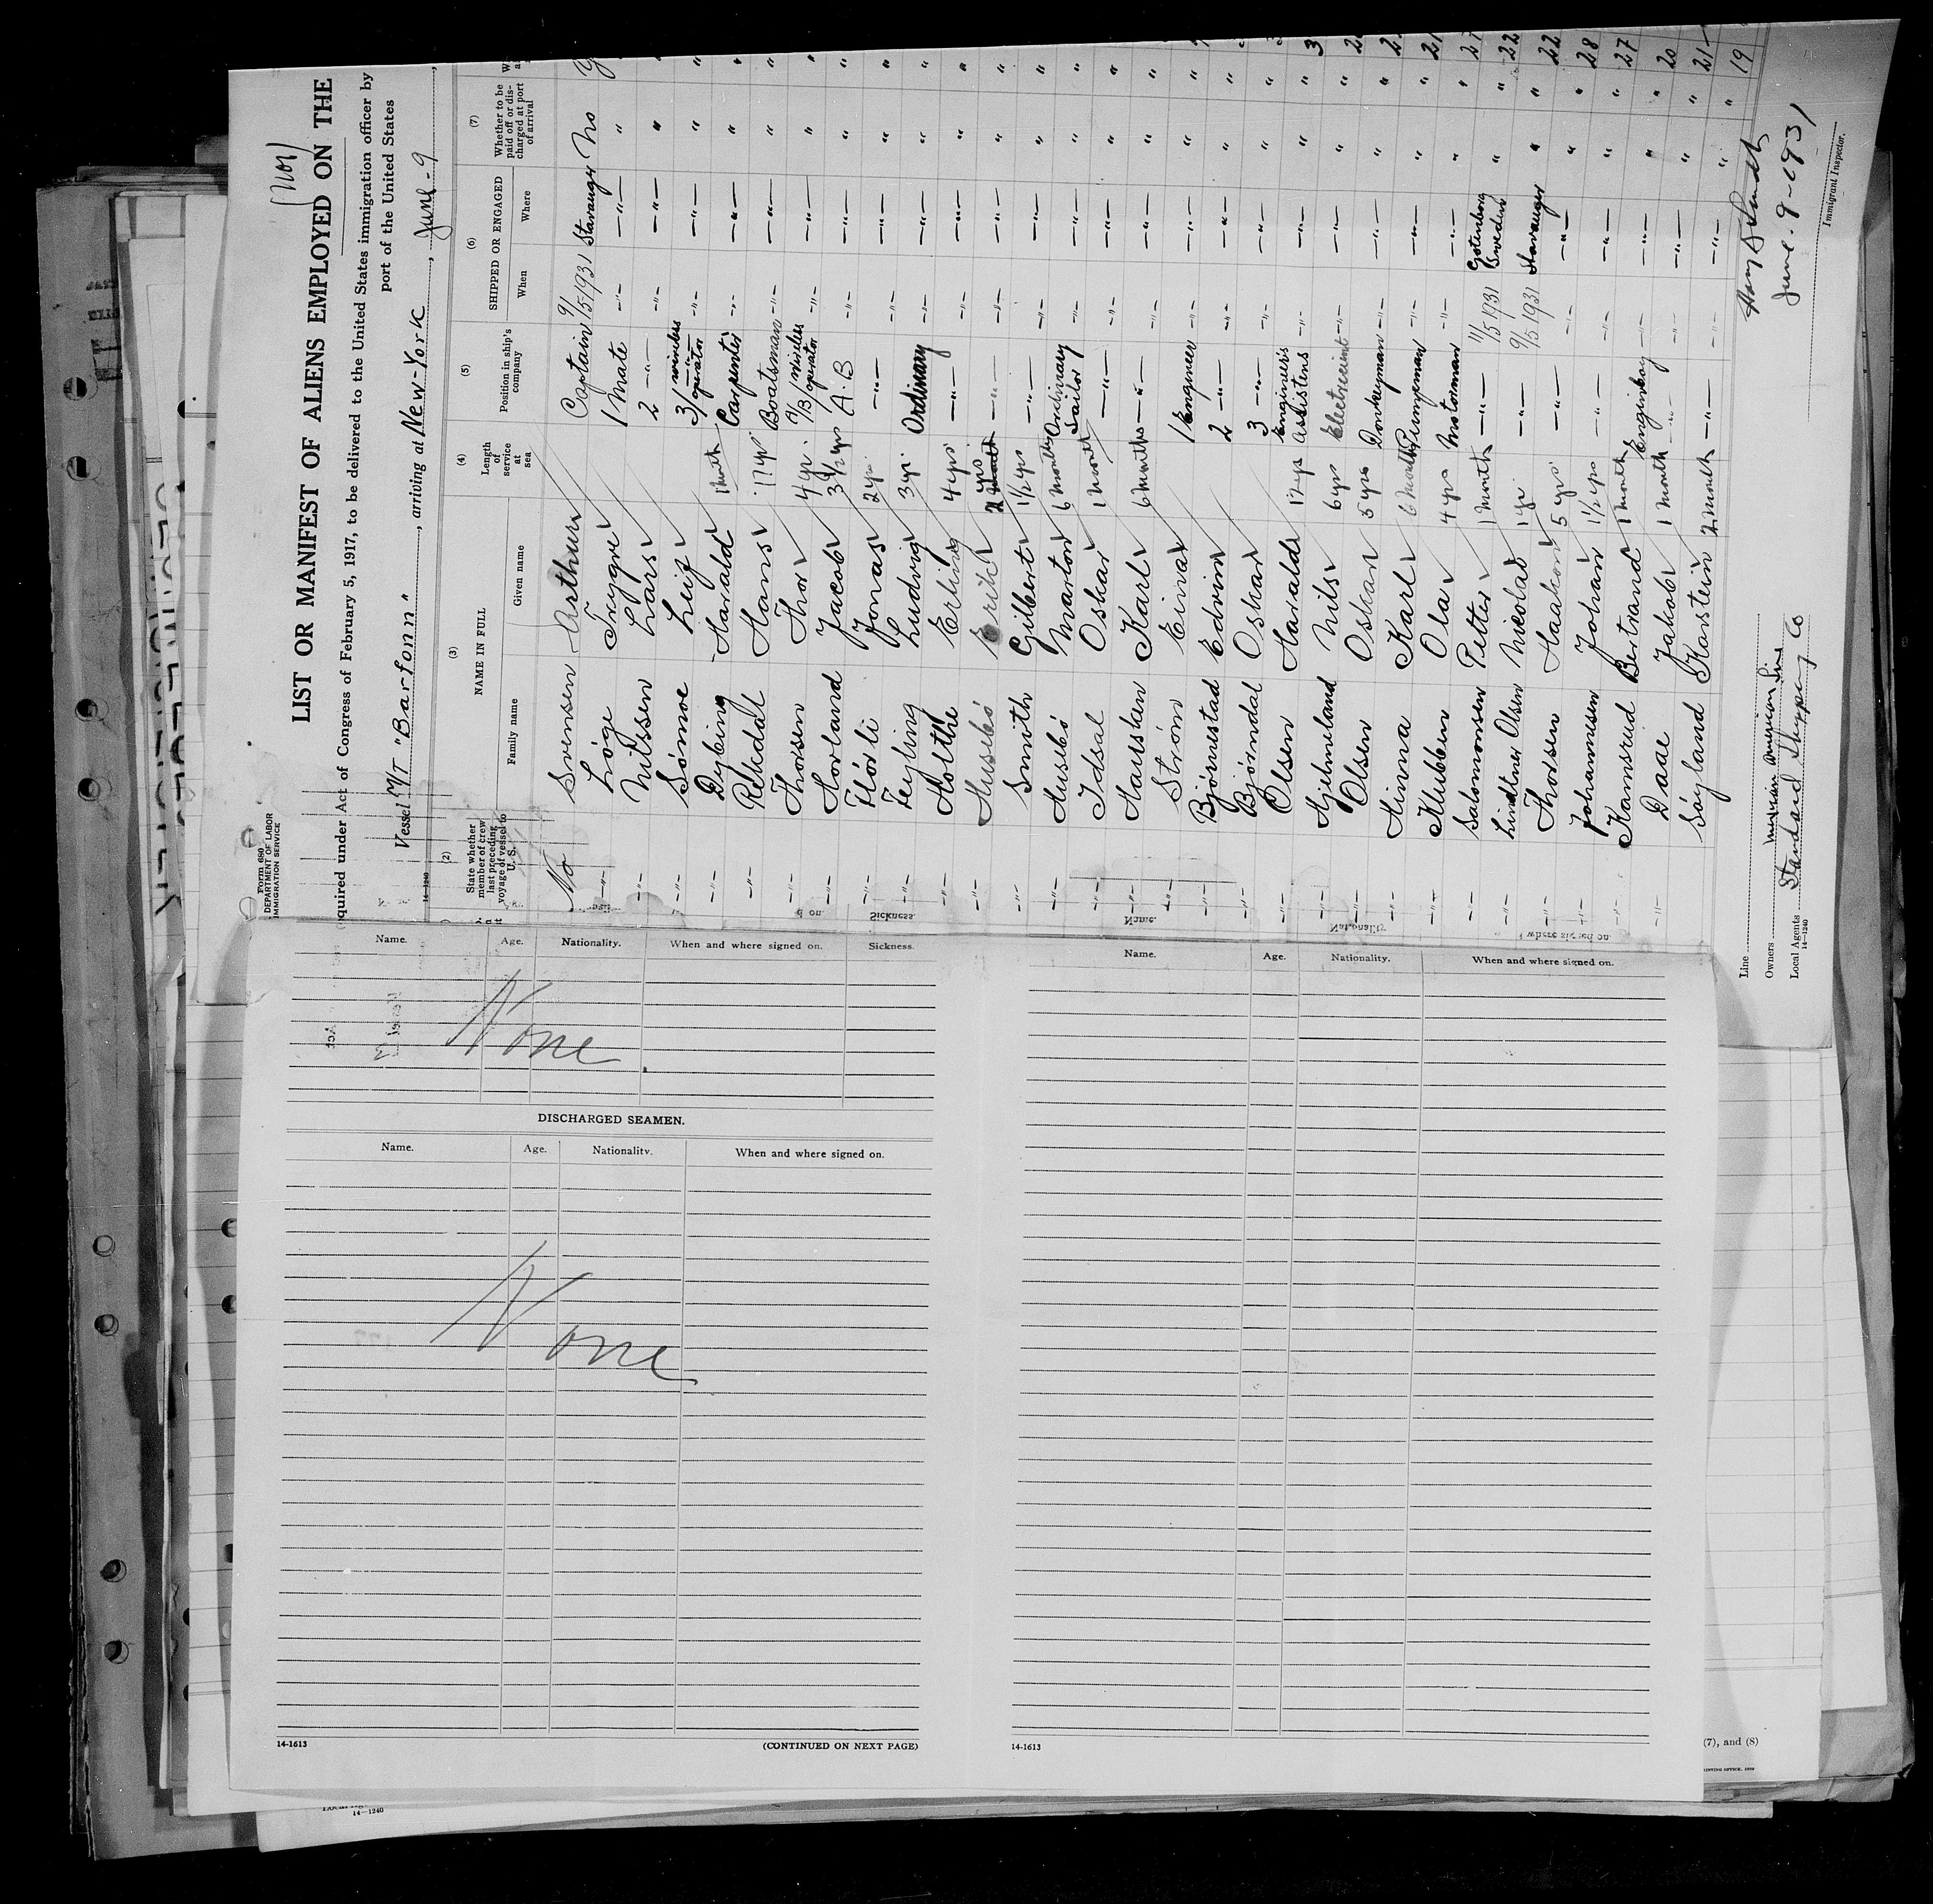 Form 680
DEPARTMENT OF LABOR
IMMIGRATION SERVICE
(Nor)
LIST OR MANIFEST OF ALIENS EMPLOYED ON THE
quired under Act of Congress of February 5, 1917, to be delivered to the United States immigration officer by
port of the United States
Vessel M/T "Barfonn", arriving at New-York, June-9,
14-1240
(2) (3) (4) (5) (6) (7)
State whether member of crew last preceding voyage of vessel to U. S.
NAME IN FULL
Family name Given name
Length of service at sea
Position in ship's company
SHIPPED OR ENGAGED
When Where
Whether to be paid off or discharged at port of arrival
No Svensen Arthur Captain 9/5 1931 Stavanger No
-"- Løge Trygve 1 Mate -"- -"- "
-"- Nilssen Lars 2 -"- -"- -"- "
-"- Sømoe Leif 3/ -"- wireless operator -"- -"- "
-"- Dybing Harald 1 month Carpenter -"- -"- "
-"- Rekdal Hans 17 yr. Boatsman -"- -"- "
-"- Thorsen Thor 4 yr. A/B wireless operator -"- -"- "
-"- Horland Jacob 3 1/2 yrs A.B -"- -"- "
-"- Flörli Jonas 2 yr. -"- -"- -"- "
-"- Feyling Ludvig 3 yr. Ordinary -"- -"- "
-"- Holthe Erling 4 yrs -"- -"- -"- "
Husebö Erik 2 yrs -"- -"- -"- "
-"- Smith Gilbert 1 1/2 yrs -"- -"- -"- "
-"- Husebö Marton 6 months Ordinary Sailor -"- -"- "
-"- Idsal Oskar 1 month -"- -"- -"- "
-"- Hausken Karl 6 months -"- -"- -"- "
-"- Strøm Einar 1 Engineer -"- -"- "
-"- Bjørnestad Edvin 2 -"- -"- -"- "
-"- Bjørndal Oskar 3 -"- -"- -"- "
-"- Olsen Harald 17 yrs Engineers Assistens -"- -"- "
-"- Hjelmeland Nils 6 yrs Electrecient -"- -"- "
-"- Olsen Oskar 5 yrs Donkeyman -"- -"- "
-"- Hinna Karl 6 months Pumpeman -"- -"- "
-"- Klubben Ola 4 yrs Motorman -"- -"- "
-"- Salomonsen Petter 1 month -"- 11/5 1931 Gotenborg Sweden "
-"- Lindtner Olsen Nicolai 1 yr. -"- 9/5 1931 Stavanger "
-"- Thorsen Haakon 5 yrs -"- -"- -"- "
-"- Johannesen Johan 1 1/2 yrs -"- -"- -"- "
-"- Kansrud Bertrand 1 month Engineboy -"- -"- "
-"- Daae Jakob 1 month -"- -"- -"- "
Söyland Karstein 2 month -"- -"- -"- "
21
27
22
22
28
27
20
21
19
Line
Owners
Local Agents Standard Shipping Co
14-1240
June-9-1931
Immigrant Inspector.
Name. Age. Nationality. When and where signed on. Sickness.
None
DISCHARGED SEAMEN.
Name. Age. Nationality. When and where signed on.
None
14-1613
(CONTINUED ON NEXT PAGE)
Name. Age. Nationality. When and where signed on.
14-1613
(7), and (8)
14-1240